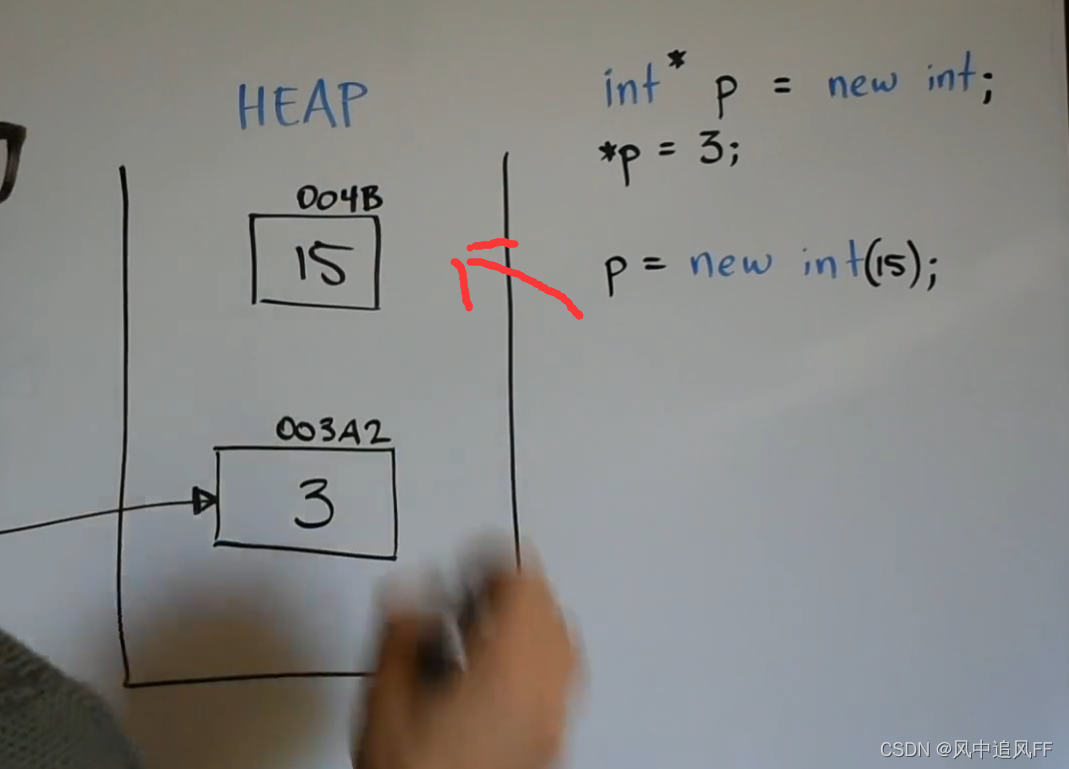 HEAP
004B
15
003A2
3
int* p = new int;
*p = 3;
p = new int(15);
CSDN @风中追风FF